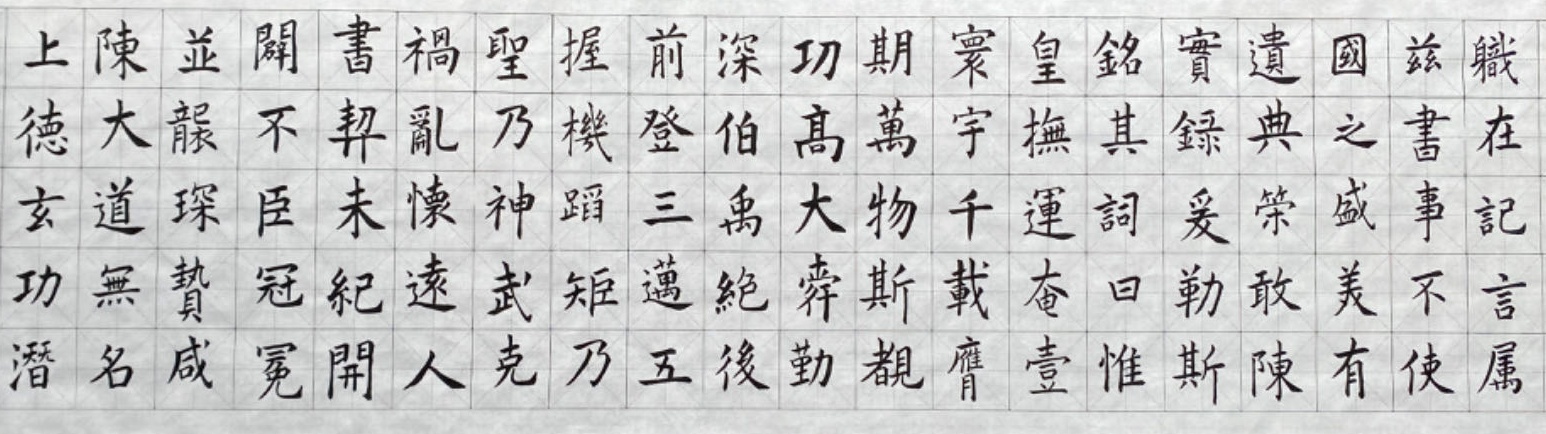 職在記言属
茲書事不使
國之盛美有
遺典榮敢陳
實錄爰勒斯
銘其詞曰惟
皇撫運奄壹
寰宇千載膺
期萬物斯覩
功高大舜勤
深伯禹絕後
前登三邁五
握機蹈矩乃
聖乃神武克
禍亂懷遠人
書契未紀開
闢不臣冠冕
並襲琛贄咸
陳大道無名
上德玄功潛